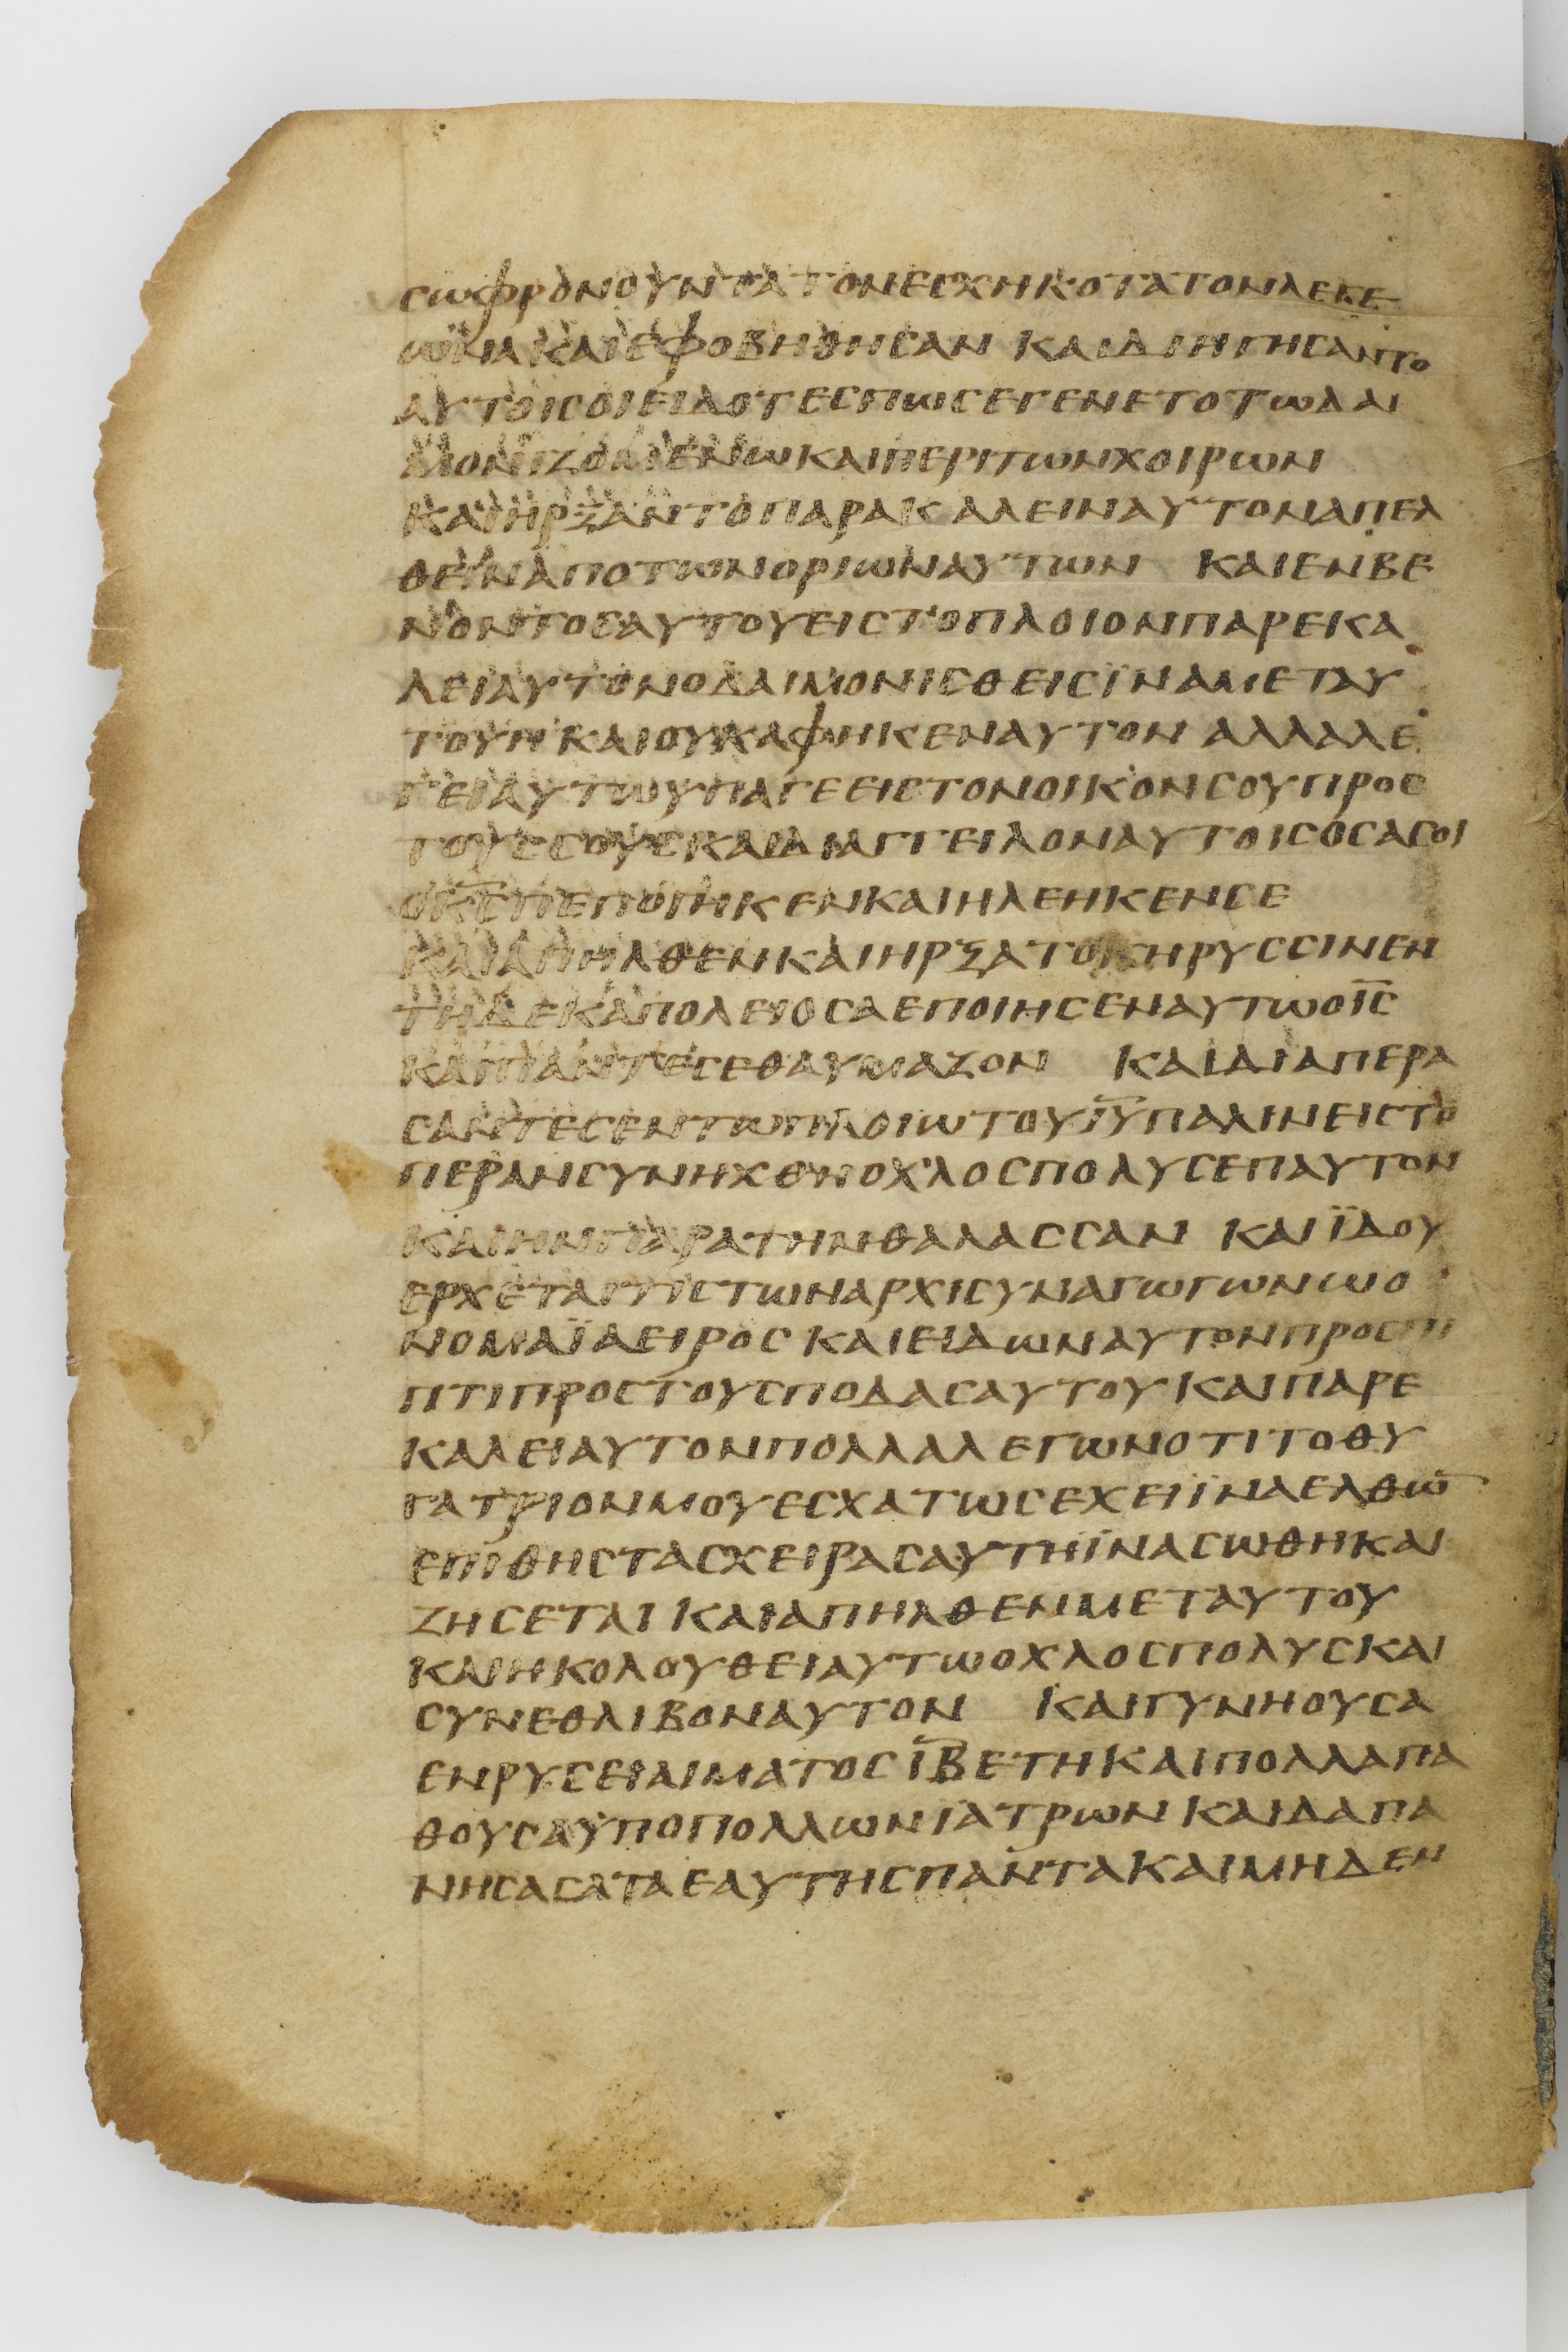 ϲωφρονουντατονεϲχηκοτατονλεγε
ωνακαιεφοβηθηϲαν καιδιηγηϲαντο
αυτοιϲοιειδοτεϲπωϲεγενετοτωδαι
μονιζομενωκαιπεριτωνχοιρων
καιηρξαντοπαρακαλειναυτοναπελ
θειναποτωνοριωναυτων καιενβε
νοντοϲαυτουειϲτοπλοιονπαρεκα
λειαυτονοδαιμονιϲθειϲϊναμεταυ
τουη καιουκαφηκεναυτοναλλαλε
γειαυτωυπαγεειϲτονοικονϲουπροϲ
τουϲϲουϲκαιδιαγγειλοναυτοιϲοϲαϲοι
οκ̅ϲ̅πεποιηκενκαιηλεηκενϲε
καιαπηλθενκαιηρξατοκηρυϲϲινεν
τηδεκαπολειοϲαεποιηϲεναυτωοι̅ϲ̅
καιπαντεϲεθαυμαζον καιδιαπερα
ϲαντεϲεντωπλοιωτουι̅υ̅παλινειϲτο
περανϲυνηχθηοχλοϲπολυϲεπαυτον
καιηνπαρατηνθαλαϲϲαν καιϊδου
ερχεταιτιϲτωναρχιϲυναγωγωνωο
νομαϊαειροϲ καιειδωναυτονπροϲπι
πτιπροϲτουϲποδαϲαυτουκαιπαρε
καλειαυτονπολλαλεγωνοτιτοθυ
γατριονμουεϲχατωϲεχειϊναελθω̅
επιθηϲταϲχειραϲαυτηϊναϲωθηκαι
ζηϲεταικαιαπηλθενμεταυτου
καιηκολουθειαυτωοχλοϲπολυϲκαι
ϲυνεθλιβοναυτον καιγυνηουϲα
ενρυϲειαιματοϲι̅β̅ετηκαιπολλαπα
θουϲαϋποπολλωνϊατρωνκαιδαπα
νηϲαϲαταεαυτηϲπαντακαιμηδεν